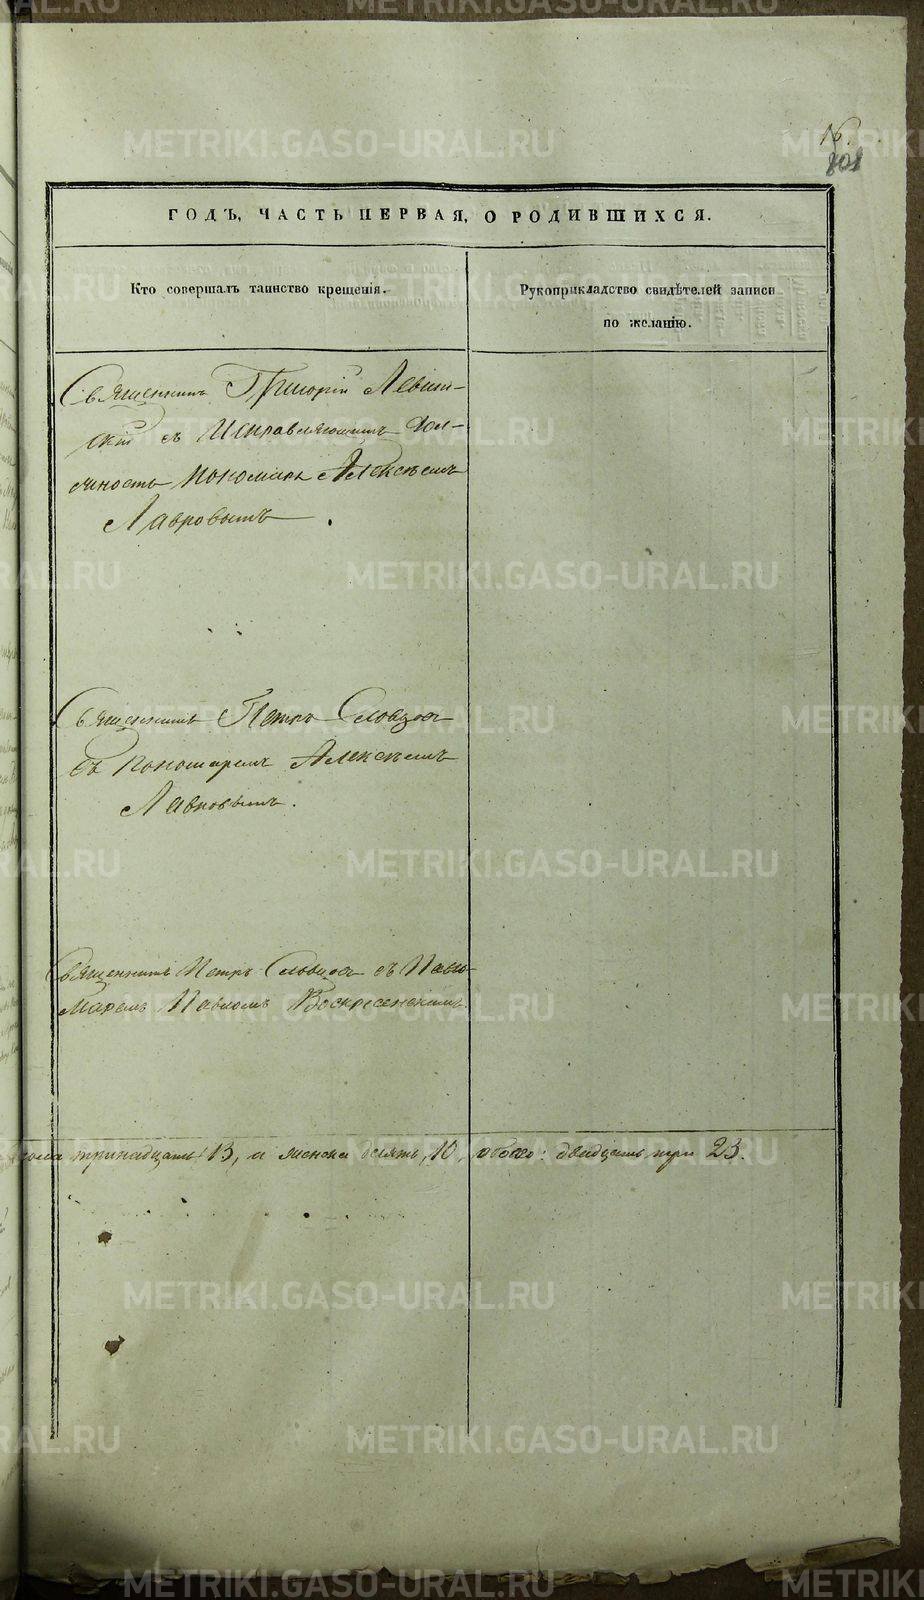 16.
801
ГОДЪ, ЧАСТЬ ПЕРВАЯ, О РОДИВШИХСЯ.
Кто совершалъ таинство крещенія.
Рукоприкладство свидѣтелей записи
по желанію.
Священникъ Григорій Левит-
скій съ Исправляющимъ дол-
жность Пономаря Алексѣемъ
Лавровымъ.
Священникъ Петръ Словцовъ
съ Пономаремъ Алексѣемъ
Лавровымъ.
Священникъ Петръ Словцовъ съ Поно-
маремъ Павломъ Воскресенскимъ
тринадцать 13, а женска десять, 10, обоего: двадцать три 23.
METRIKI.GASO-URAL.RU